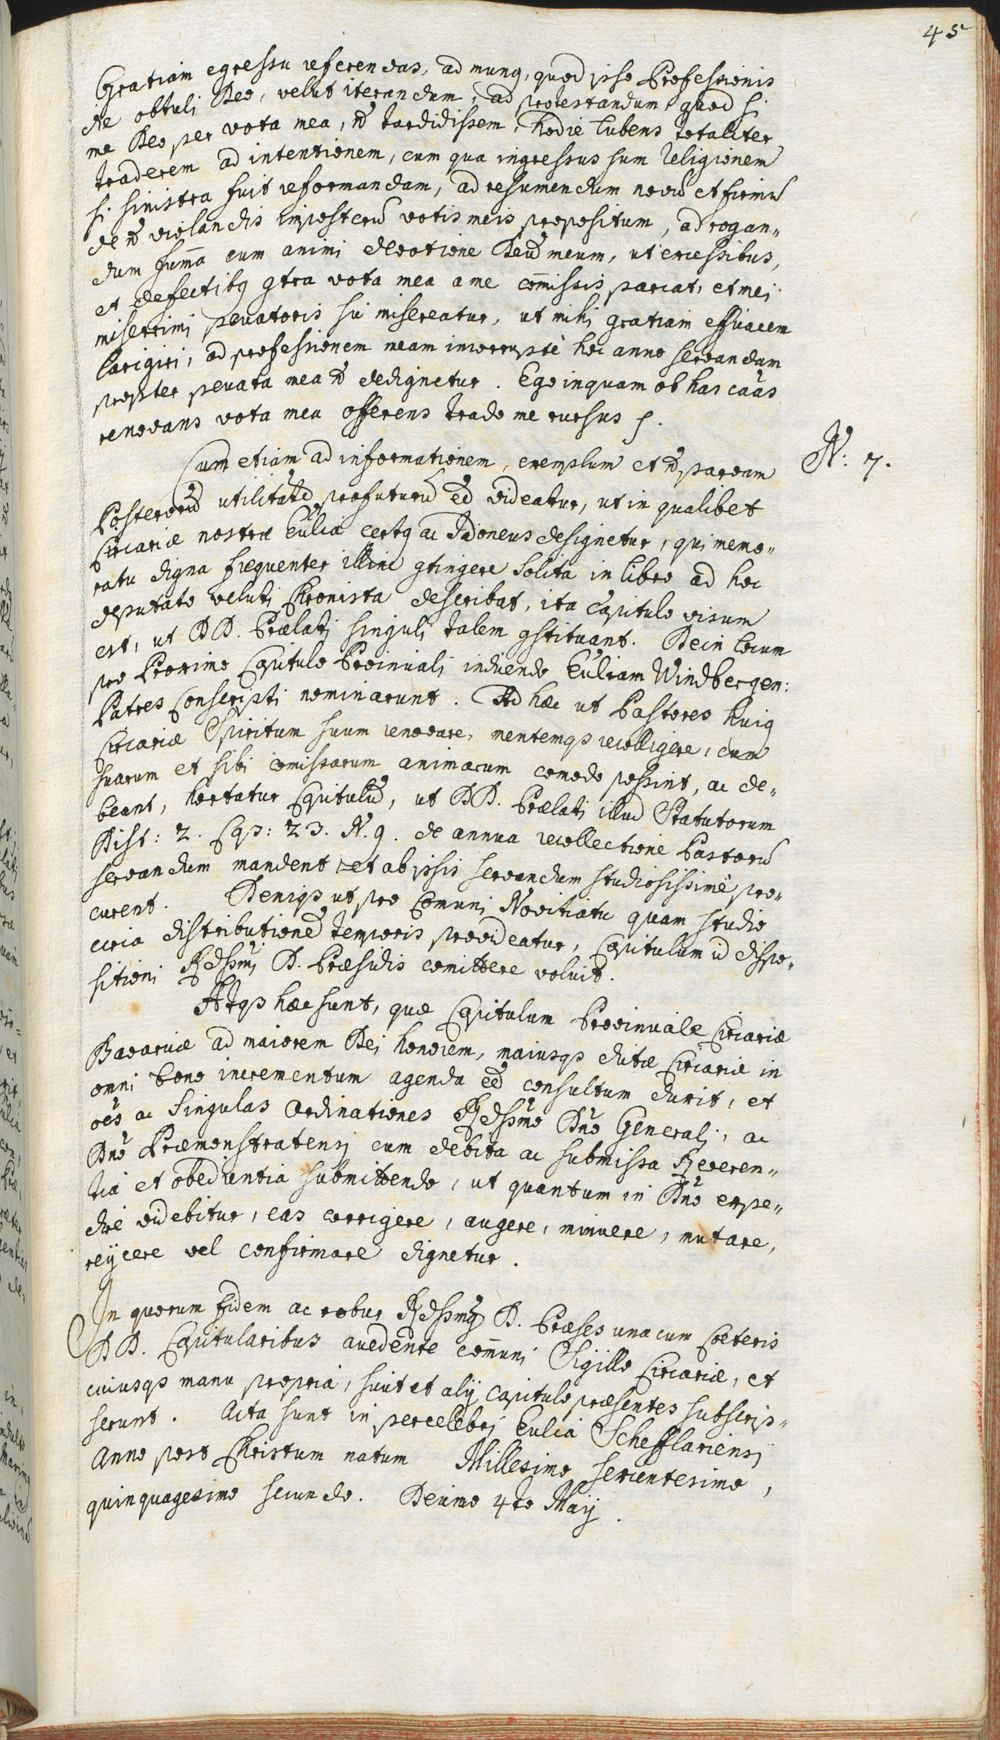 45
Gratiam egressu referendas, ad munq, quod ipso Professionis
die obtuli Deo, velut iterandum, ad protestandum quod si
me Deo per vota mea, nõ tradidissem, hodie lubens totaliter
traderem ad intentionem, cum qua ingressus sum religionem
si sinistra fuit reformandam, ad resumendum novũ et firmũ
de nõ violandis imposterũ votis meis propositum, ad rogan„
dum suma cum animi devotione Deũ meum, ut excessibus,
et defectibq gtra vota mea a me comissis parcat, et mei
miserrimi peccatoris sic misereatur, ut mihi gratiam efficacem
largiri, ad professionem meam incorruptè hoc anno servandam
propter peccata mea nõ dedignetur. Ego inquam ob has caũas
renovans vota mea offerens trado me rursus p.
Cum etiam ad informationem, exemplum et nõ parvam N: 7.
Posterorũ utilitatẽ profuturũ eẽ videatur, ut in qualibet
Circariæ nostræ Eclia certq ac Idoneus designetur, qui memo„
ratu digna frequenter illinc gtingere solita in libro ad hoc
deputato veluti Chronista describat, ita Capitulo visum
est, ut DD. Prælati singuli talem gstituant. Dein locum
pro Proximo Capitulo Provinciali indicendo Ecliam Windbergen:
Patres Conscripti nominarunt. Ad hæc ut Pastores huiq
Circariæ Spiritum suum renovare, mentemqs recolligere, cum
suarum et sibi comissarum animarum comodo possint, ac de„
beant, hortatur Capitulũ, ut DD. Prælati illud Statutorum
Dist: 2. Cap: 23. N. 9. de annua recollectione Pastorũ
servandum mandent et ab ipsis servandum studiosissimè pro„
curent. Deniqs ut pro Comuni Novitiatu quam studio
circa distributionẽ temporis provideatur, Capitulum id dispo„
sitioni Rdssmi D. Præsidis comittere voluit.
Atqs hæc sunt, quæ Capitulum Provinciale Circariæ
Bavaricæ ad maiorem Dei honorem, maiusqs dictæ Circariæ in
omni bono incrementum agenda eẽ consultum duxit, et
oẽs ac singulas ordinationes Rdssmo Dño Generali, ac
Dño Præmonstratensi cum debita ac submissa Reveren„
tia et obedientia submittendo, ut quantum in Dño expe„
dire videbitur, eas corrigere, augere, minuere, mutare,
reijcere vel confirmare dignetur.
In quorum fidem ac robur Rdssmq D. Præses una cum Cæteris
DD. Capitularibus accedente comuni Sigillo Circariæ, et
cuiusqs manu propria, sicut et alij capitulo præsentes subscrip„
serunt. Acta sunt in percelebri Eclia Schefflariensi
Anno post Christum natum Millesimo septcentesimo,
quinquagesimo secundo. Decimo 4to Maij.